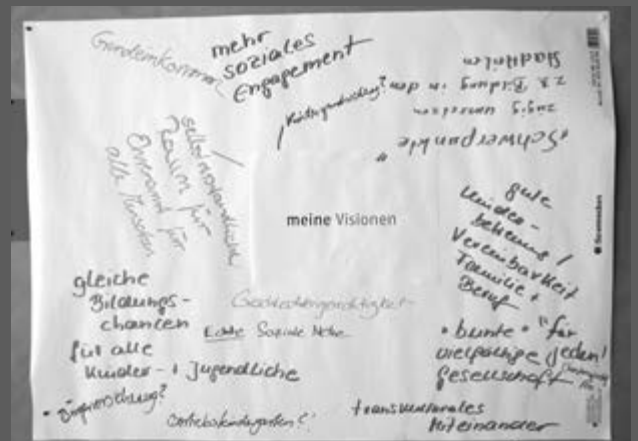 mehr
soziales
Engagement
"Schwerpunkte"
zügig umsetzen
z.B. Bildung in den
Stadtteilen
selbstverständliche
Raum für
Ehrenamt für
alle Menschen
meine Visionen
gute
Kinder-
betreuung /
Vereinbarkeit
Familie +
Beruf
gleiche
Bildungs-
chancen
für alle
Kinder- + Jugendliche
Geschlechtergerechtigkeit
Echte Soziale Nähe
• bunte • "für
vielfältige jeden!
Gesellschaft
Betriebskindergarten?
transnationales
Miteinander